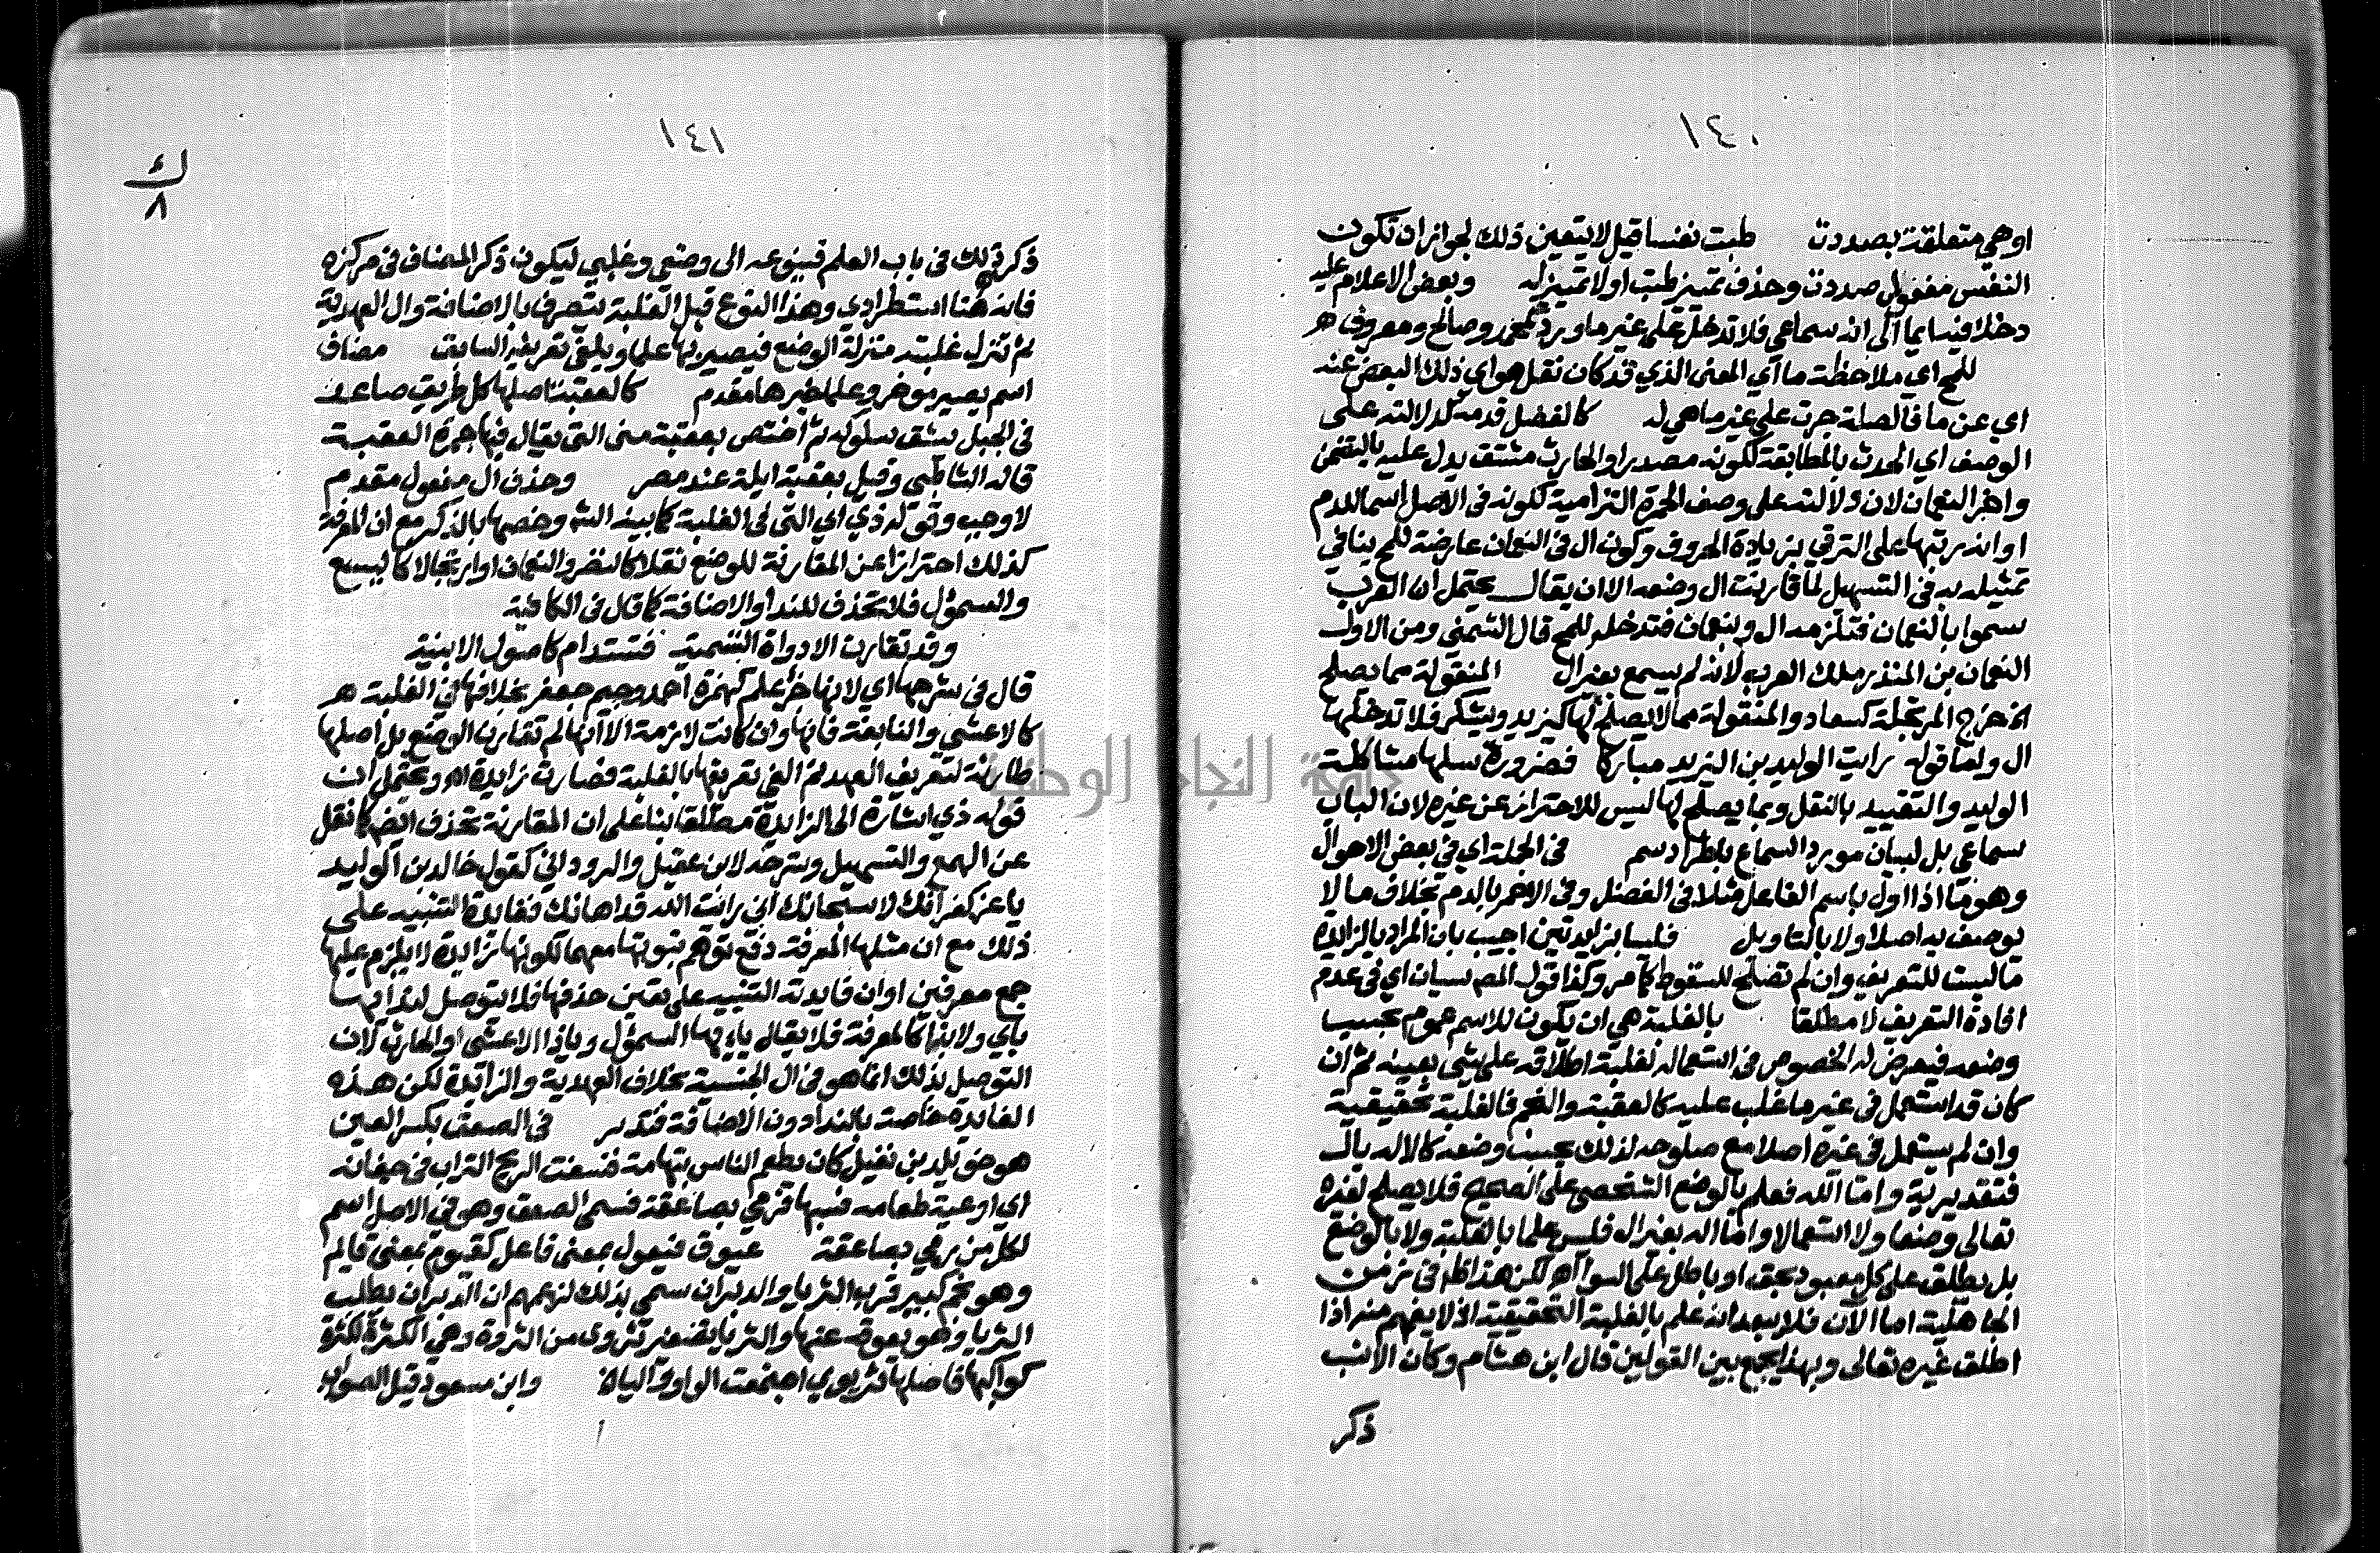 ١٤٠
او هي متعلقة بصددت طبت نفسا قيل لا يتعين ذلك لجواز ان تكون
النفس مفعول صددت وحذف تمييز طبت اولا تمييز له وبعض الاعلام عليه
دخلا فيه ايماء الى انه سماعي فلا تدخل على غير ما ورد كمحمد وصالح ومعروف اهـ
للمح اي ملاحظة ما اي المعنى الذي قد كان نقل هو اي ذلك البعض عنه
اي عن ما فالصلة جرت على غير ما هي له كالفضل قدمه لدلالته على
الوصف اي الحدث بالمطابقة لكونه مصدرا والحارث مشتق يدل عليه بالتضمن
واخر النعمان لان دلالته على وصف الحمرة التزامية لكونه في الاصل اسما للدم
او انه رتبها على الترقي بزيادة الحروف وكون ال في النعمان عارضة للمح ينافي
تمثيله به في التسهيل لما قارنت ال وضعه الا ان يقال يحتمل ان العرب
سموا بالنعمان فتلزمه ال وبنعمان فتدخله للمح قال الشمني ومن الاول
النعمان بن المنذر ملك العرب لانه لم يسمع بغير ال المنقولة مما يصلح
الخ خرج المرتجلة كسعاد والمنقولة مما لا يصلح لها كيزيد ويشكر فلا تدخلها
ال واما قوله رايت الوليد بن اليزيد مباركا فضرورة سهلها مشاكلة
الوليد والتقييد بالنقل وبما يصلح لها ليس للاحتراز عن غيره لان الباب
سماعي بل لبيان مورد السماع باطراد سم في الجملة اي في بعض الاحوال
وهو ما اذا اول باسم الفاعل مثلا في الفضل وفي الاحمر بالدم بخلاف ما لا
يوصف به اصلا ولا بالتاويل فليسا بزايدتين اجيب بان المراد بالزايدة
ما ليست للتعريف وان لم تصلح للسقوط كما مر وكذا قول المص سيان اي في عدم
افادة التعريف لا مطلقا بالغلبة هي ان يكون للاسم عموم بحسب
وضعه فيعرض له الخصوص في استعماله لغلبة اطلاقه على شي بعينه ثم ان
كان قد استعمل في غير ما غلب عليه كالعقبة والنجم فالغلبة تحقيقية
وان لم يستعمل في غيره اصلا مع صلوحه لذلك بحسب وضعه كالاله بال
فتقديرية واما الله فعلم بالوضع الشخصي على الصحيح فلا يصلح لغيره
تعالى وضعا ولا استعمالا واما اله بغير ال فليس علما بالغلبة ولا بالوضع
بل يطلق على كل معبود بحق او باطل على السواء اهـ لكن هذا ظاهر في زمن
الجاهلية اما الآن فلا يبعد انه علم بالغلبة التحقيقية اذ لا يفهم منه اذا
اطلق غيره تعالى وبهذا يجمع بين القولين قال ابن هشام وكان الانسب
ذكر
١٤١
ك
٨
ذكر ذلك في باب العلم فينوعه الى وضعي وغلبي ليكون ذكر المضاف في مركزه
فانه هنا استطرادي وهذا النوع قبل الغلبة يتعرف بالاضافة وال العهدية
ثم تنزل غلبته منزلة الوضع فيصير بها علما ويلغى تعريفه السابق مضاف
اسم يصير مؤخر وعلما خبرها مقدم كالعقبة اصلها كل طريق صاعد
في الجبل يشق سلوكه ثم اختص بعقبة منى التي يقال فيها جمرة العقبة
قاله الشاطبي وقيل بعقبة ايلة عند مصر وحذف ال مفعول مقدم
لاوجب وقوله ذي اي التي في الغلبة كما بينه الش وخصها بالذكر مع ان المعرفة
كذلك احترازا عن المقارنة للوضع نقلا كالنضر والنعمان او ارتجالا كاليسع
والسموأل فلا تحذف للنداء والاضافة كما قال في الكافية
وقد تقارن الاداة التسمية فتستدام كاصول الابنية
قال في شرحها اي لانها جزء علم كهمزة احمد وجيم جعفر بخلافها في الغلبة اهـ
كالاعشى والنابغة فانها وان كانت لازمة الا انها لم تقارن الوضع بل اصلها
طارئة لتعريف العهد ثم الغي تعريفها بالغلبة فصارت زايدة اهـ ويحتمل ان
قوله ذي اشارة الى الزايدة مطلقا بناء على ان المقارنة تحذف ايضا كما نقل
عن الهمع والتسهيل وشرحه لابن عقيل والروداني كقول خالد بن الوليد
يا عز كفرانك لا سبحانك اني رايت الله قد اهانك ففايدة التنبيه على
ذلك مع ان مثلها المعرفة دفع توهم ثبوتها معهما لكونها زايدة لا يلزم عليها
جمع معرفين او ان فايدته التنبيه على تعين حذفها فلا يتوصل لندائها
باي ولا بذا كالمعرفة فلا يقال يا ايها السموأل ويا ذا الاعشى او الحارث لان
التوصل بذلك انما هو في ال الجنسية بخلاف العهدية والزائدة لكن هذه
الفايدة خاصة بالنداء دون الاضافة فتدبر في الصعق بكسر العين
هو خويلد بن نفيل كان يطعم الناس بتهامة فسفت الريح التراب في جفانه
اي اوعية طعامه فسبها فرمي بصاعقة فسمى الصعق وهو في الاصل اسم
لكل من رمي بصاعقة عيوق فيعول بمعنى فاعل كقيوم بمعنى قايم
وهو نجم كبير قرب الثريا والدبران سمي بذلك لزعمهم ان الدبران يطلب
الثريا وهو يعوقه عنها والثريا تصغير ثروى من الثروة وهي الكثرة لكثرة
كواكبها فاصلها ثريوى اجتمعت الواو والياء الخ وابن مسعود قيل الصواب